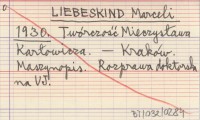 LIEBESKIND Marceli
1930. Twórczość Mieczysława
Karłowicza. — Kraków.
Maszynopis. Rozprawa doktorska
na UJ.
37/032/0284